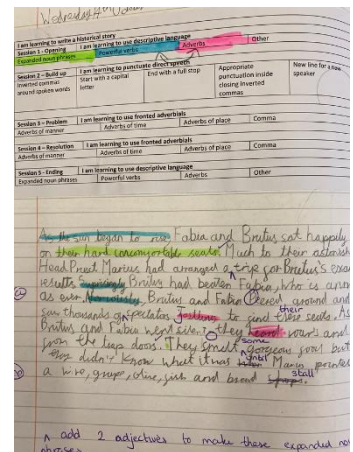 Wednesday
I am learning to write a historical story
Session 1 - Opening I am learning to use descriptive language
Expanded noun phrases Powerful verbs Adverbs Other
Session 2 – Build up I am learning to punctuate direct speech
Inverted commas around spoken words Start with a capital letter End with a full stop Appropriate punctuation inside closing inverted commas New line for a new speaker
Session 3 – Problem I am learning to use fronted adverbials
Adverbs of manner Adverbs of time Adverbs of place Comma
Session 4 – Resolution I am learning to use fronted adverbials
Adverbs of manner Adverbs of time Adverbs of place Comma
Session 5 - Ending I am learning to use descriptive language
Expanded noun phrases Powerful verbs Adverbs Other
As the sun began to rise Fabia and Brutus sat happily
on their hard uncomfortable seats. Much to their
Head Marius had arranged a trip for Brutus's
results. Brutus had beaten Fabia, who is
as ever. Brutus and Fabia around and
saw thousands of to find their seats. As
Brutus and Fabia went they heard and
from the trap doors. They smelt some gorgeous but
they didn't know what it was until Marius pointed
a wine, grape, olive, fish and bread stall
^ add 2 adjectives to make these expanded noun
phrases